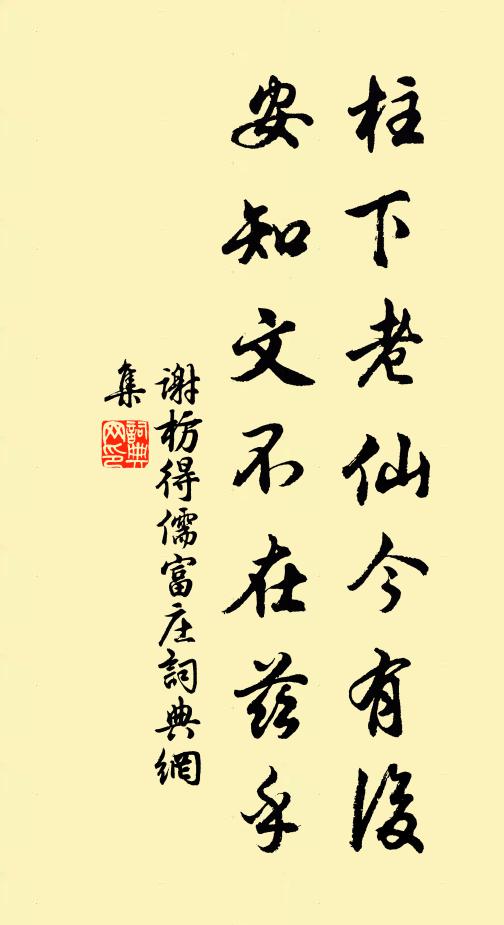 柱下老仙今有後
安知文不在茲乎
謝枋得儒富庄詞典網
集
詞典网印